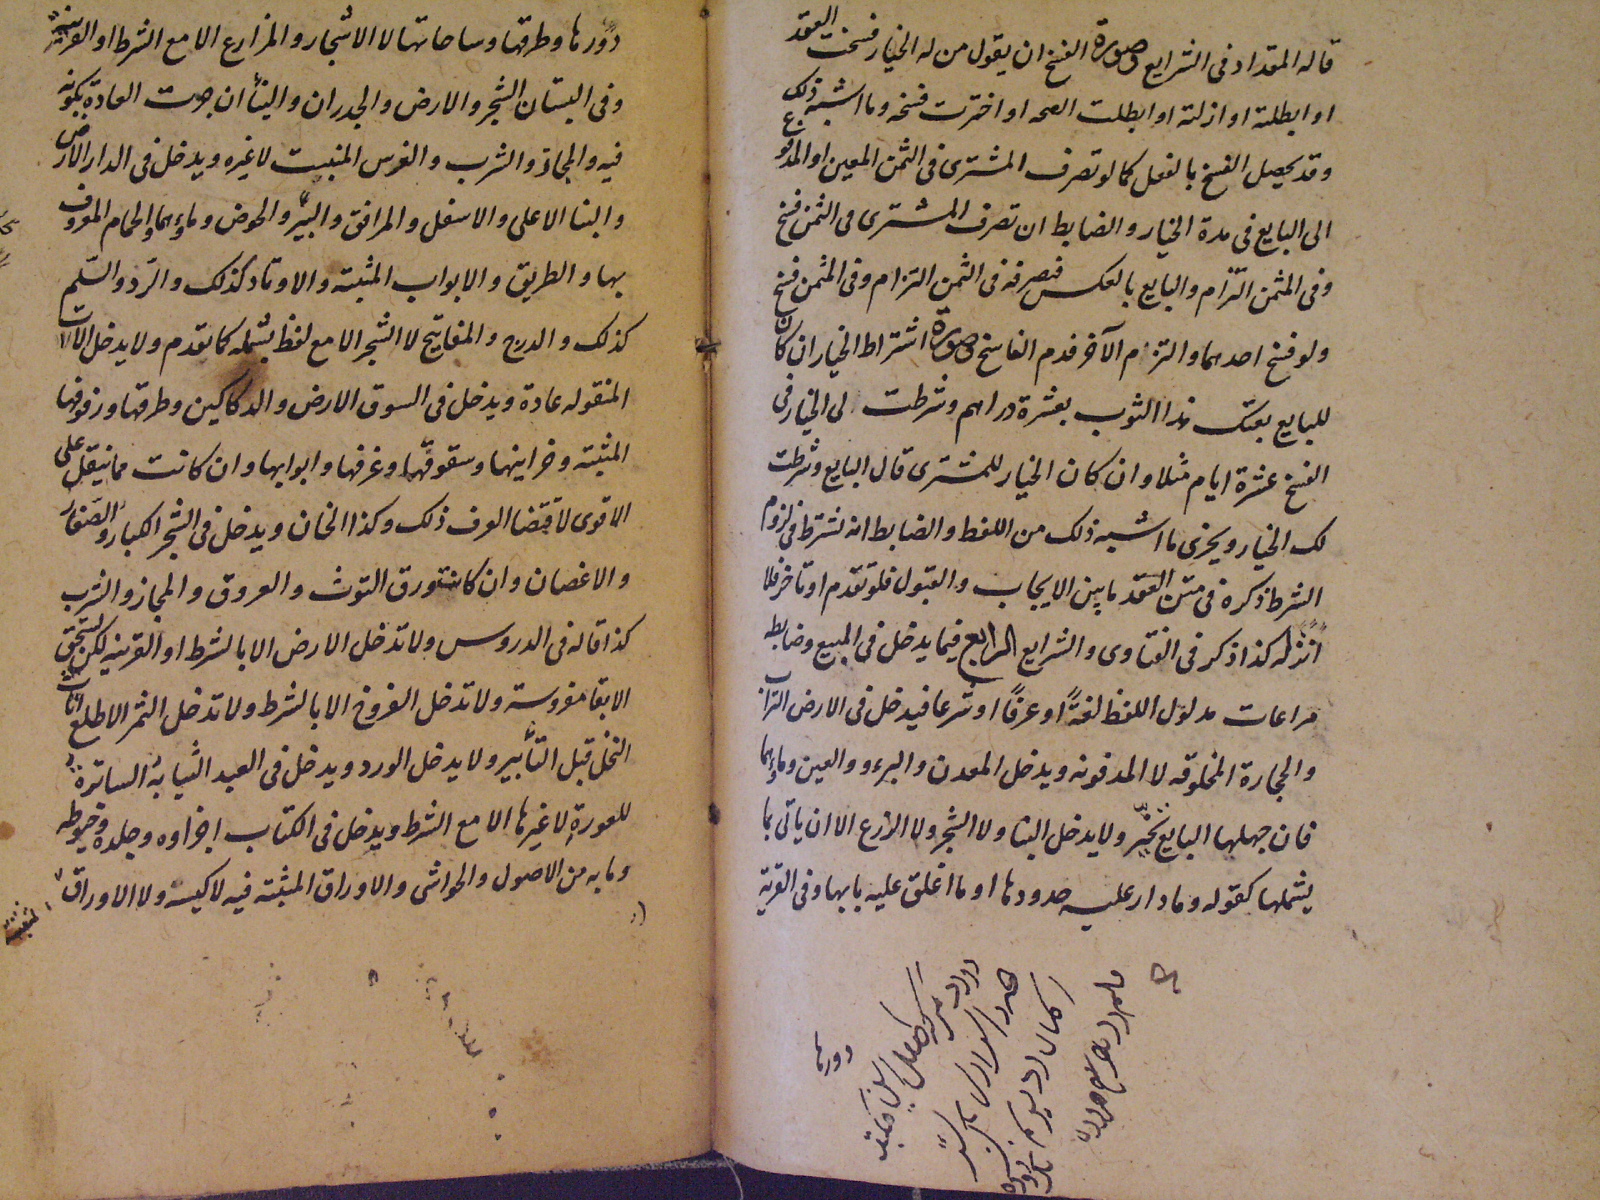 قاله المقداد فى الشرايع وصورة الفسخ ان يقول من له الخيار فسخت العقد
او ابطلته او ازلته او ابطلت الصحه او اخترت فسخه وما اشبه ذلك
وقد يحصل الفسخ بالفعل كما لو تصرف المشترى فى الثمن المعين او المدفوع
الى البايع فى مدة الخيار والضابط ان تصرف المشترى فى الثمن فسخ
وفى المثمن التزام والبايع بالعكس فتصرفه فى الثمن التزام وفى المثمن فسخ
ولو فسخ احدهما والتزام الآخر قدم الفاسخ وصورة اشتراط الخيار ان كان
للبايع بعتك هذا الثوب بعشرة دراهم وشرطت لى الخيار فى
الفسخ عشرة ايام مثلا وان كان الخيار للمشترى قال البايع وشرطت
لك الخيار ويجزى ما اشبه ذلك من اللفظ والضابط انه يشترط فى لزوم
الشرط ذكره فى متن العقد ما بين الايجاب والقبول فلو تقدم او تاخر فلا
اثر له كذا ذكر فى الفتاوى والشرايع الرابع فيما يدخل فى المبيع وضابطه
مراعات مدلول اللفظ لغةً او عرفًا او شرعا فيدخل فى الارض التراب
والحجارة المخلوقه لا المدفونه ويدخل المعدن والبرء والعين وماؤهما
فان جهلها البايع تخيّر ولا يدخل البنا ولا الشجر ولا الزرع الا ان ياتى بما
يشملها كقوله وما دار عليه حدودها او ما اغلق عليه بابها وفى القرية
دورها
دورها وطرقها وساحاتها لا الاشجار والمزارع الا مع الشرط او القرينة
وفى البستان الشجر والارض والجدران والبنأ ان جرت العادة بكونه
فيه والمجاز والشرب والغرس المنبت لا غيره ويدخل فى الدار الارض
والبنا الاعلى والاسفل والمرافق والبئر والحوض وماؤهما والحمام المعروف
بها والطريق والابواب المثبته والاوتاد كذلك والرّد والسّلم
كذلك والدرج والمفاتيح لا الشجر الا مع لفظ يشمله كما تقدم ولا يدخل الالات
المنقوله عادة ويدخل فى السوق الارض والدكاكين وطرقها ورفوفها
المثبته وخزاينها وسقوفها وغرفها وابوابها وان كانت مما ينقل على
الاقوى لاقتضا العرف ذلك وكذا الخان ويدخل فى الشجر الكبار والصّغار
والاغصان وان كانت ورق التوث والعروق والمجاز والشرب
كذا قاله فى الدروس ولا تدخل الارض الا بالشرط او القرينه لكن يستحق
الابقا مغروسة ولا تدخل الفروخ الا بالشرط ولا تدخل الثمر الا طلع اناث
النخل قبل التأبير ولا يدخل الورد ويدخل فى العبد الثيابه الساترة
للعورة لا غيرها الا مع الشرط ويدخل فى الكتاب اجزاوه وجلده وخيوطه
وما به من الاصول والحواشى والاوراق المثبته فيه لا كيسه ولا الاوراق